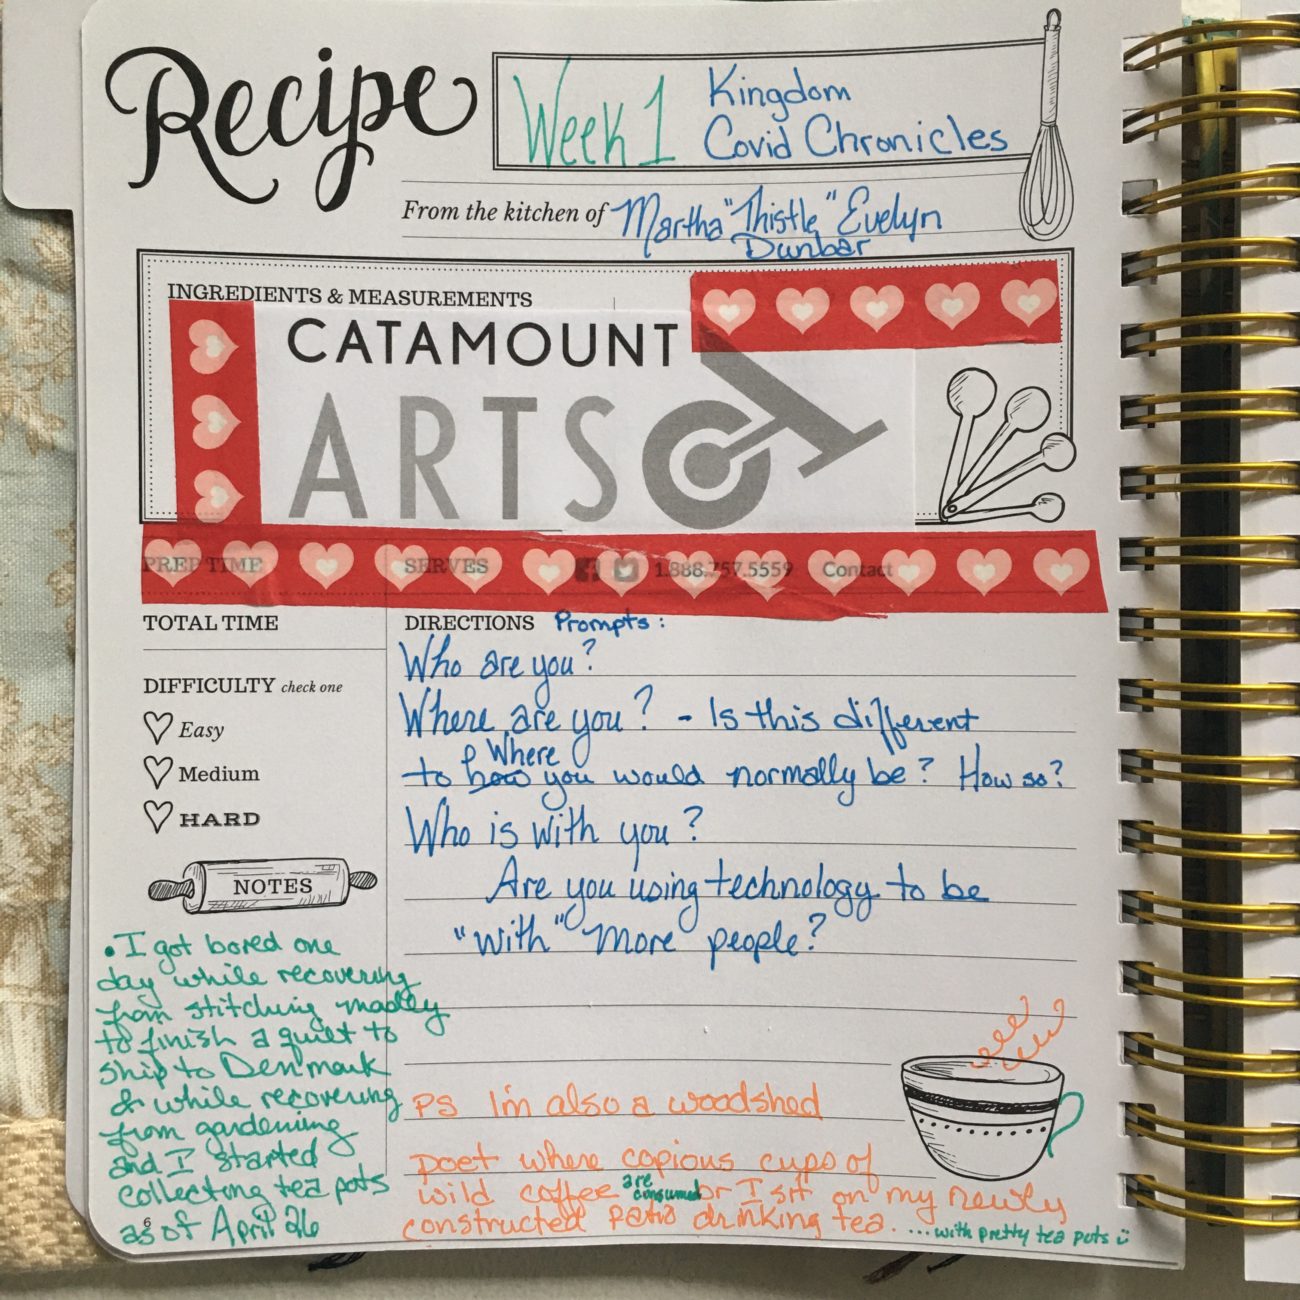 Recipe
Week 1
Kingdom
Covid Chronicles
From the kitchen of Martha "Thistle" Evelyn
Dunbar
INGREDIENTS & MEASUREMENTS
CATAMOUNT
ARTS
PREP TIME
SERVES
1.888.757.5559 Contact
TOTAL TIME
DIFFICULTY check one
Easy
Medium
HARD
NOTES
• I got bored one
day while recovering
from stitching madly
to finish a quilt to
ship to Denmark
& while recovering
from gardening
and I started
collecting tea pots
as of April 26
6
DIRECTIONS Prompts:
Who are you?
Where are you? - Is this different
Where
to how you would normally be? How so?
Who is with you?
Are you using technology to be
"with" more people?
PS I'm also a woodshed
poet where copious cups of
wild coffee are consumed or I sit on my newly
constructed patio drinking tea. ...with pretty tea pots